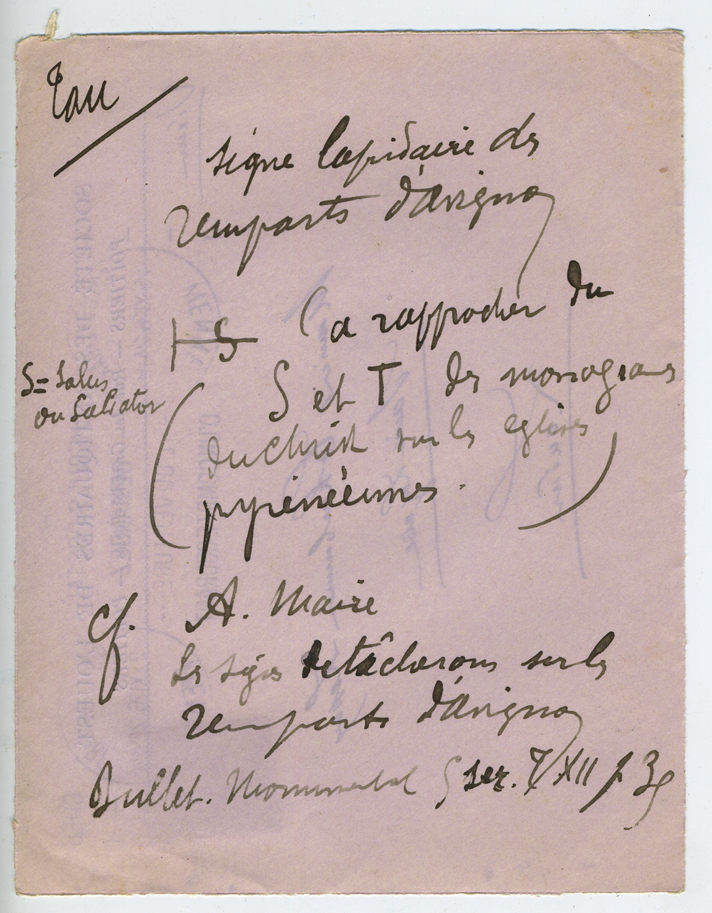 Tau
signe lapidaire des
remparts d'Avignon
(a rapprocher du
S = Salus
ou Salvator
S et T des monogrammes
du Christ sur les eglises
pyrénéennes.)
cf. A. Maire
Les signes de tâcherons sur les
remparts d'Avignon
Bullet. Monumental 5 ser. T XII p